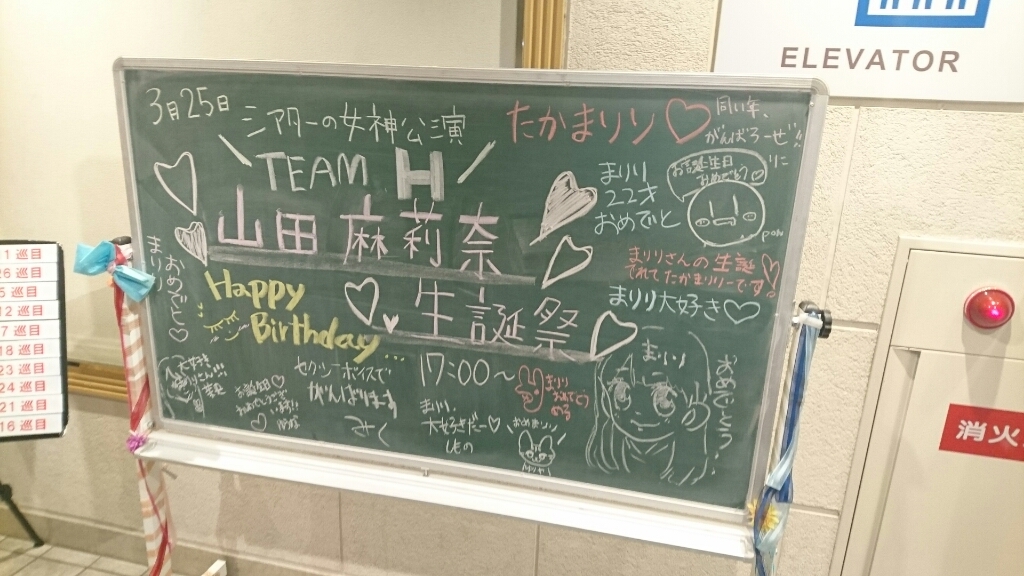 ELEVATOR
3月25日
シアターの女神公演
TEAM H
山田麻莉奈
生誕祭
Happy
Birthday
17:00〜
たかまりり♡
同い年、
がんばろーぜ!!
まりり
22才
おめでと
お誕生日
おめでとう♡
まりりさんの生誕
でれてたかまりりーです。
まりり大好き♡
まりり
おめでとう
まりり
おめでとう
セクシーボイスで
がんばります
さく
まりり、
大好きだー♡
まりり
おめでとう
おめまりり
1巡目
26巡目
5巡目
12巡目
7巡目
18巡目
23巡目
24巡目
21巡目
16巡目
消火